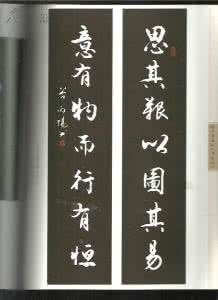 思其艱以圖其易
意有物而行有恒